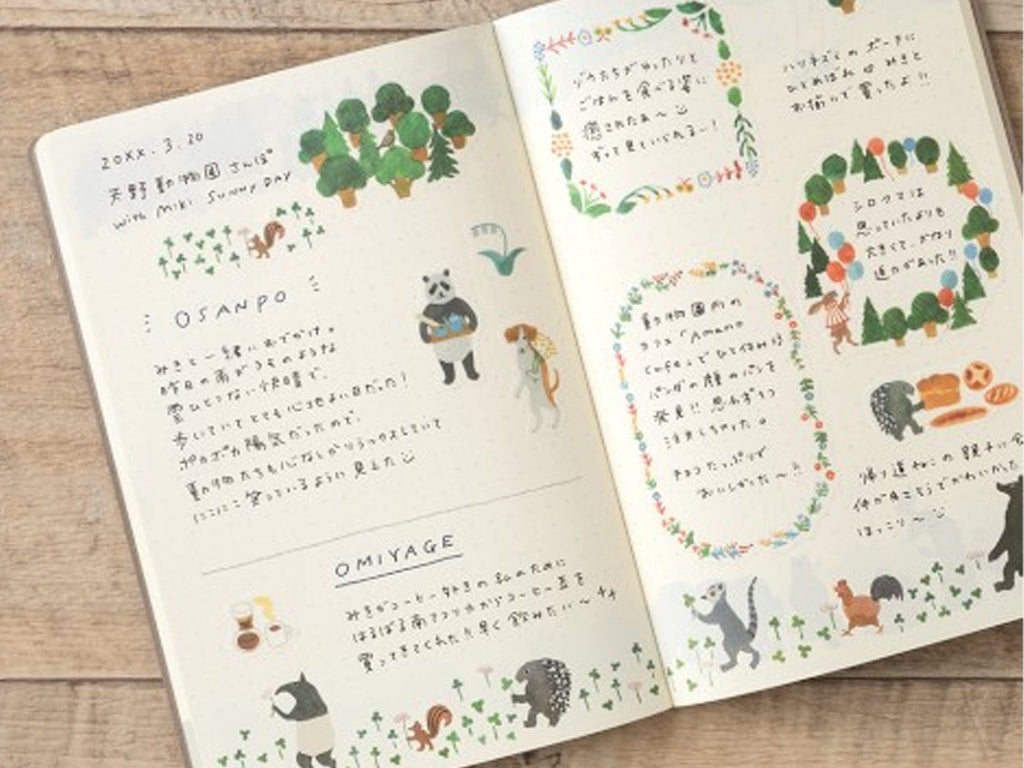 20XX. 3. 20
天野動物園 さんぽ
with MIKI SUNNY DAY
OSANPO
みきと一緒におでかけ。
昨日の雨がうそのような
雲ひとつない快晴で、
歩いていてとても心地よい日だった!
ポカポカ陽気だったので、
動物たちも心なしかリラックスしていて
にこにこ笑っているように見えた
OMIYAGE
みきがコーヒー好きの私のために
はるばる南アフリカからコーヒー豆を
買ってきてくれた!! 早く飲みたい〜
ゾウたちがゆったりと
ごはんを食べる姿に
癒されたぁ〜
ずっと見ていられる〜!
ハリネズミの ポーチに
ひとめぼれ みきと
お揃いで買ったよ!!
シロクマは
思っていたよりも
大きくて、かなり
迫力があった!!
動物園内の
カフェ「Amano
Cafe」でひと休み
パンダの顔のパンを
発見!! 思わず
注文しちゃった。
チョコたっぷりで
おいしかった〜!!
帰り道ねこの親子に会
仲が良さそうでかわいかった
ほっこり〜